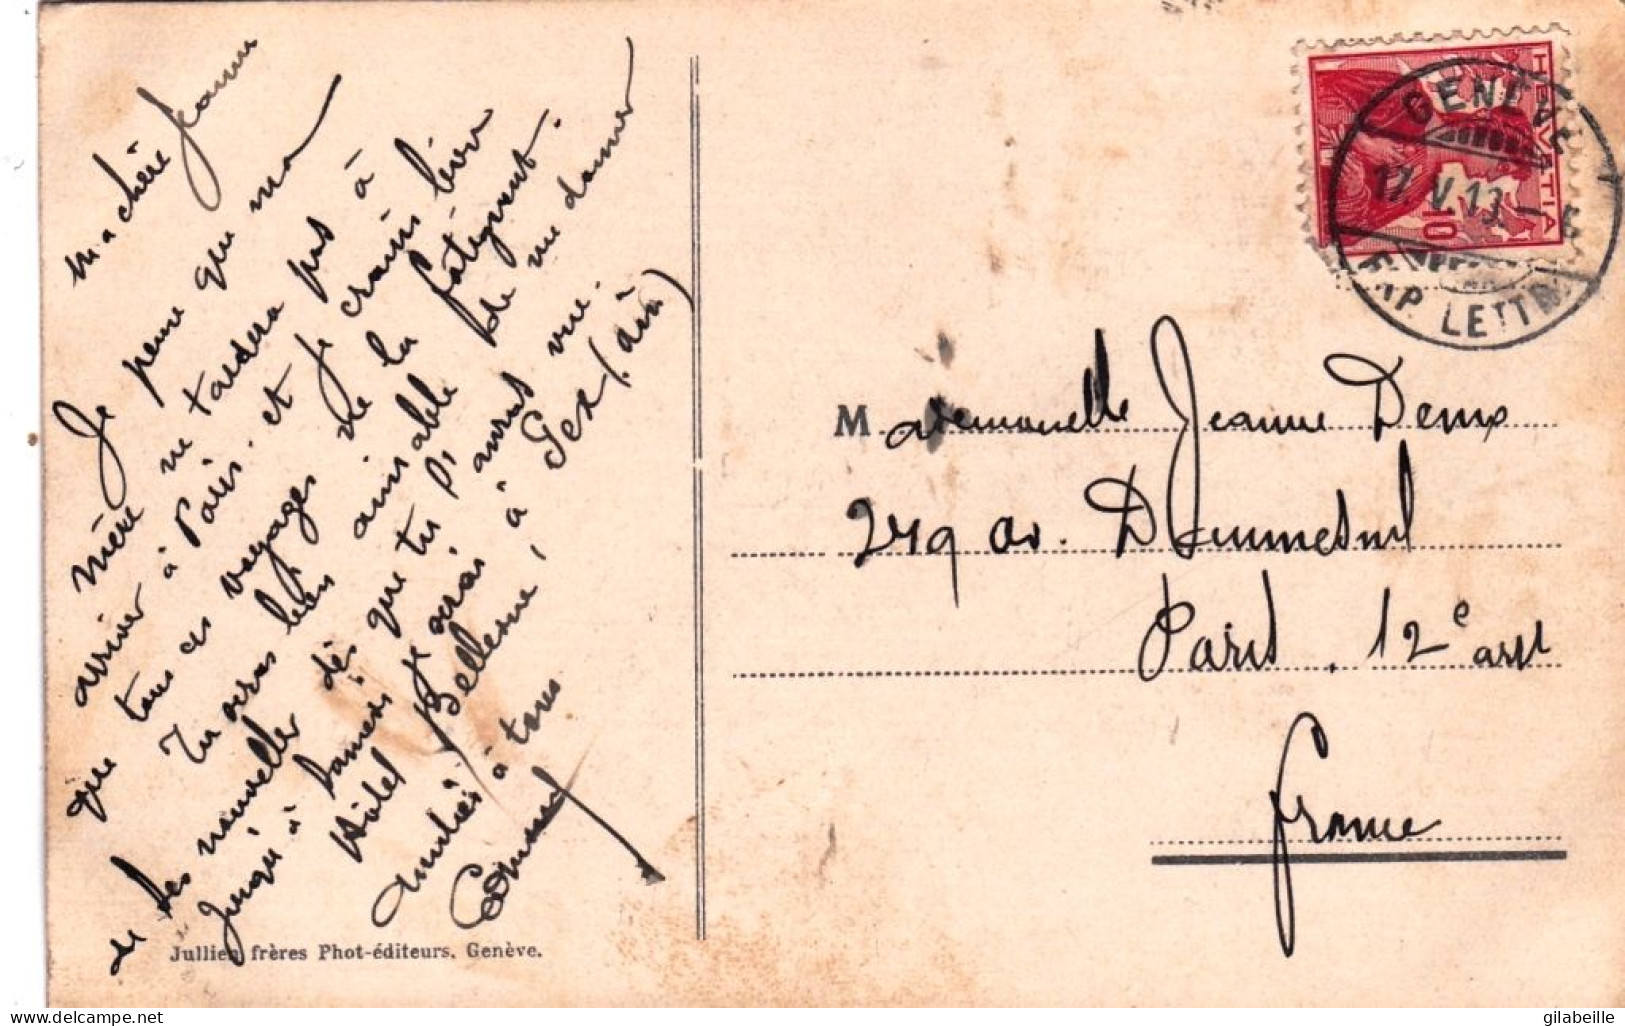 ma chère Jeanne
Je pense que ma
mère ne tardera pas à
arriver à Paris. et je crains bien
que tous ces voyages ne la fatiguent.
Tu seras bien aimable de me donner
de ses nouvelles dès que tu l'auras vue.
Jusqu'à Samedi je serai à Gex (ain)
Hôtel Bellevue,
Amitiés à tous
Jullien frères Phot-éditeurs, Genève.
HELVETIA
10
GENÈVE
17.V.13
EXP. LETTR
Mademoiselle Jeanne Denis
279 av. Daumesnil
Paris. 12e arrt
France
delcampe.net
gilabeille